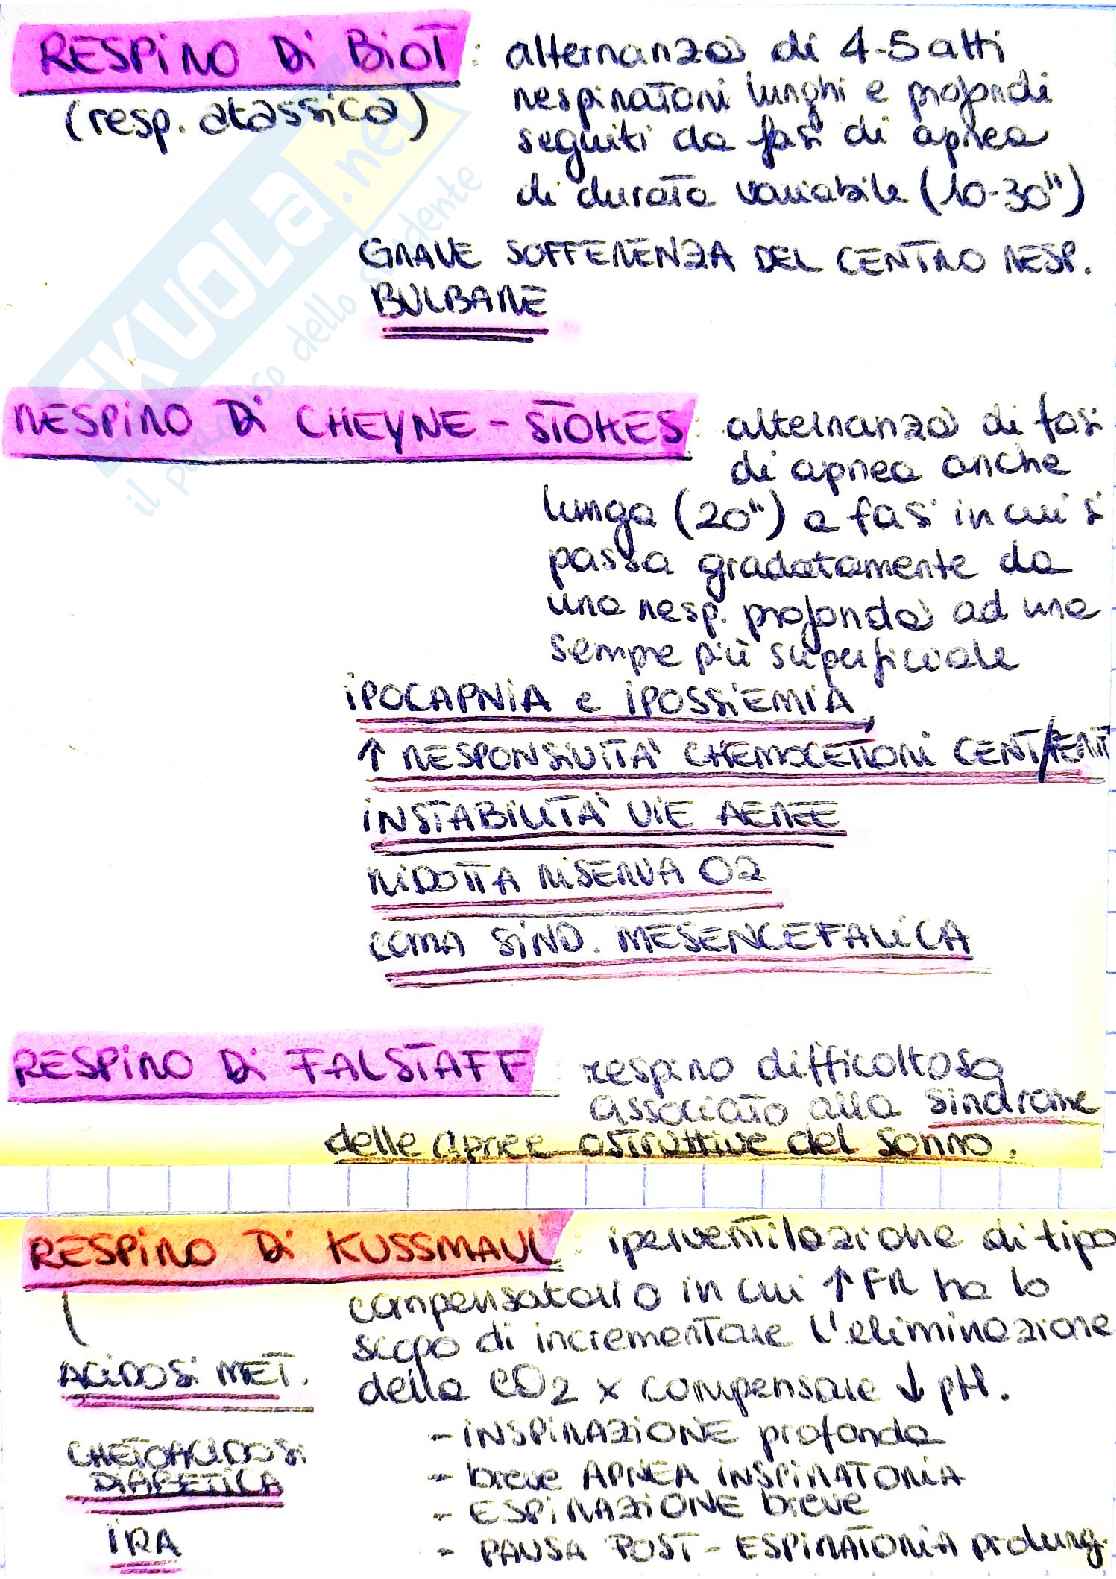 RESPIRO Di BiOT: alternanza di 4-5 atti
(resp. atassica) respiratori lunghi e profondi
seguiti da fasi di apnea
di durata variabile (10-30")
GRAVE SOFFERENZA DEL CENTRO RESP.
BULBARE
RESPIRO Di CHEYNE-STOKES: alternanza di fasi
di apnea anche
lunga (20") a fasi in cui si
passa gradatamente da
una resp. profonda ad una
sempre più superficiale
iPOCAPNIA e iPOSSiEMIA,
↑ RESPONSIVITÀ CHEMOCETTORI
iNSTABILITÀ VIE AEREE
RIDOTTA RISERVA O2
COMA SiND. MESENCEFALiCA
RESPIRO Di FALSTAFF: respiro difficoltoso
associato alla sindrome
delle apnee ostruttive del sonno.
RESPIRO Di KUSSMAUL: iperventilazione di tipo
compensatorio in cui ↑FR ha lo
scopo di incrementare l'eliminazione
della CO2 x compensare ↓pH.
ACiDOSi MET.
- iNSPIRAZIONE profonda
CHETOACIDOSi
DIABETICA
- breve APNEA iNSPIRATORIA
- ESPIRAZIONE breve
iRA
- PAUSA POST-ESPIRATORIA prolung.
SKUOLA.net
il paradiso dello studente